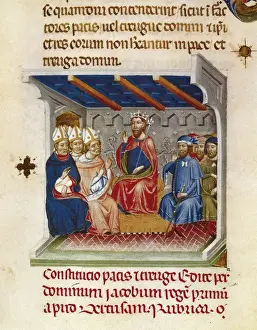 se quam diu contenerint sicut i tracto
tores pacis uel treugue domum et ipi
etres eorum non hantur in pace et
treuga domum.
Constitucio pacis et treuge edite per
dominum iacobum regem primum
apud Dertusam Rubrica